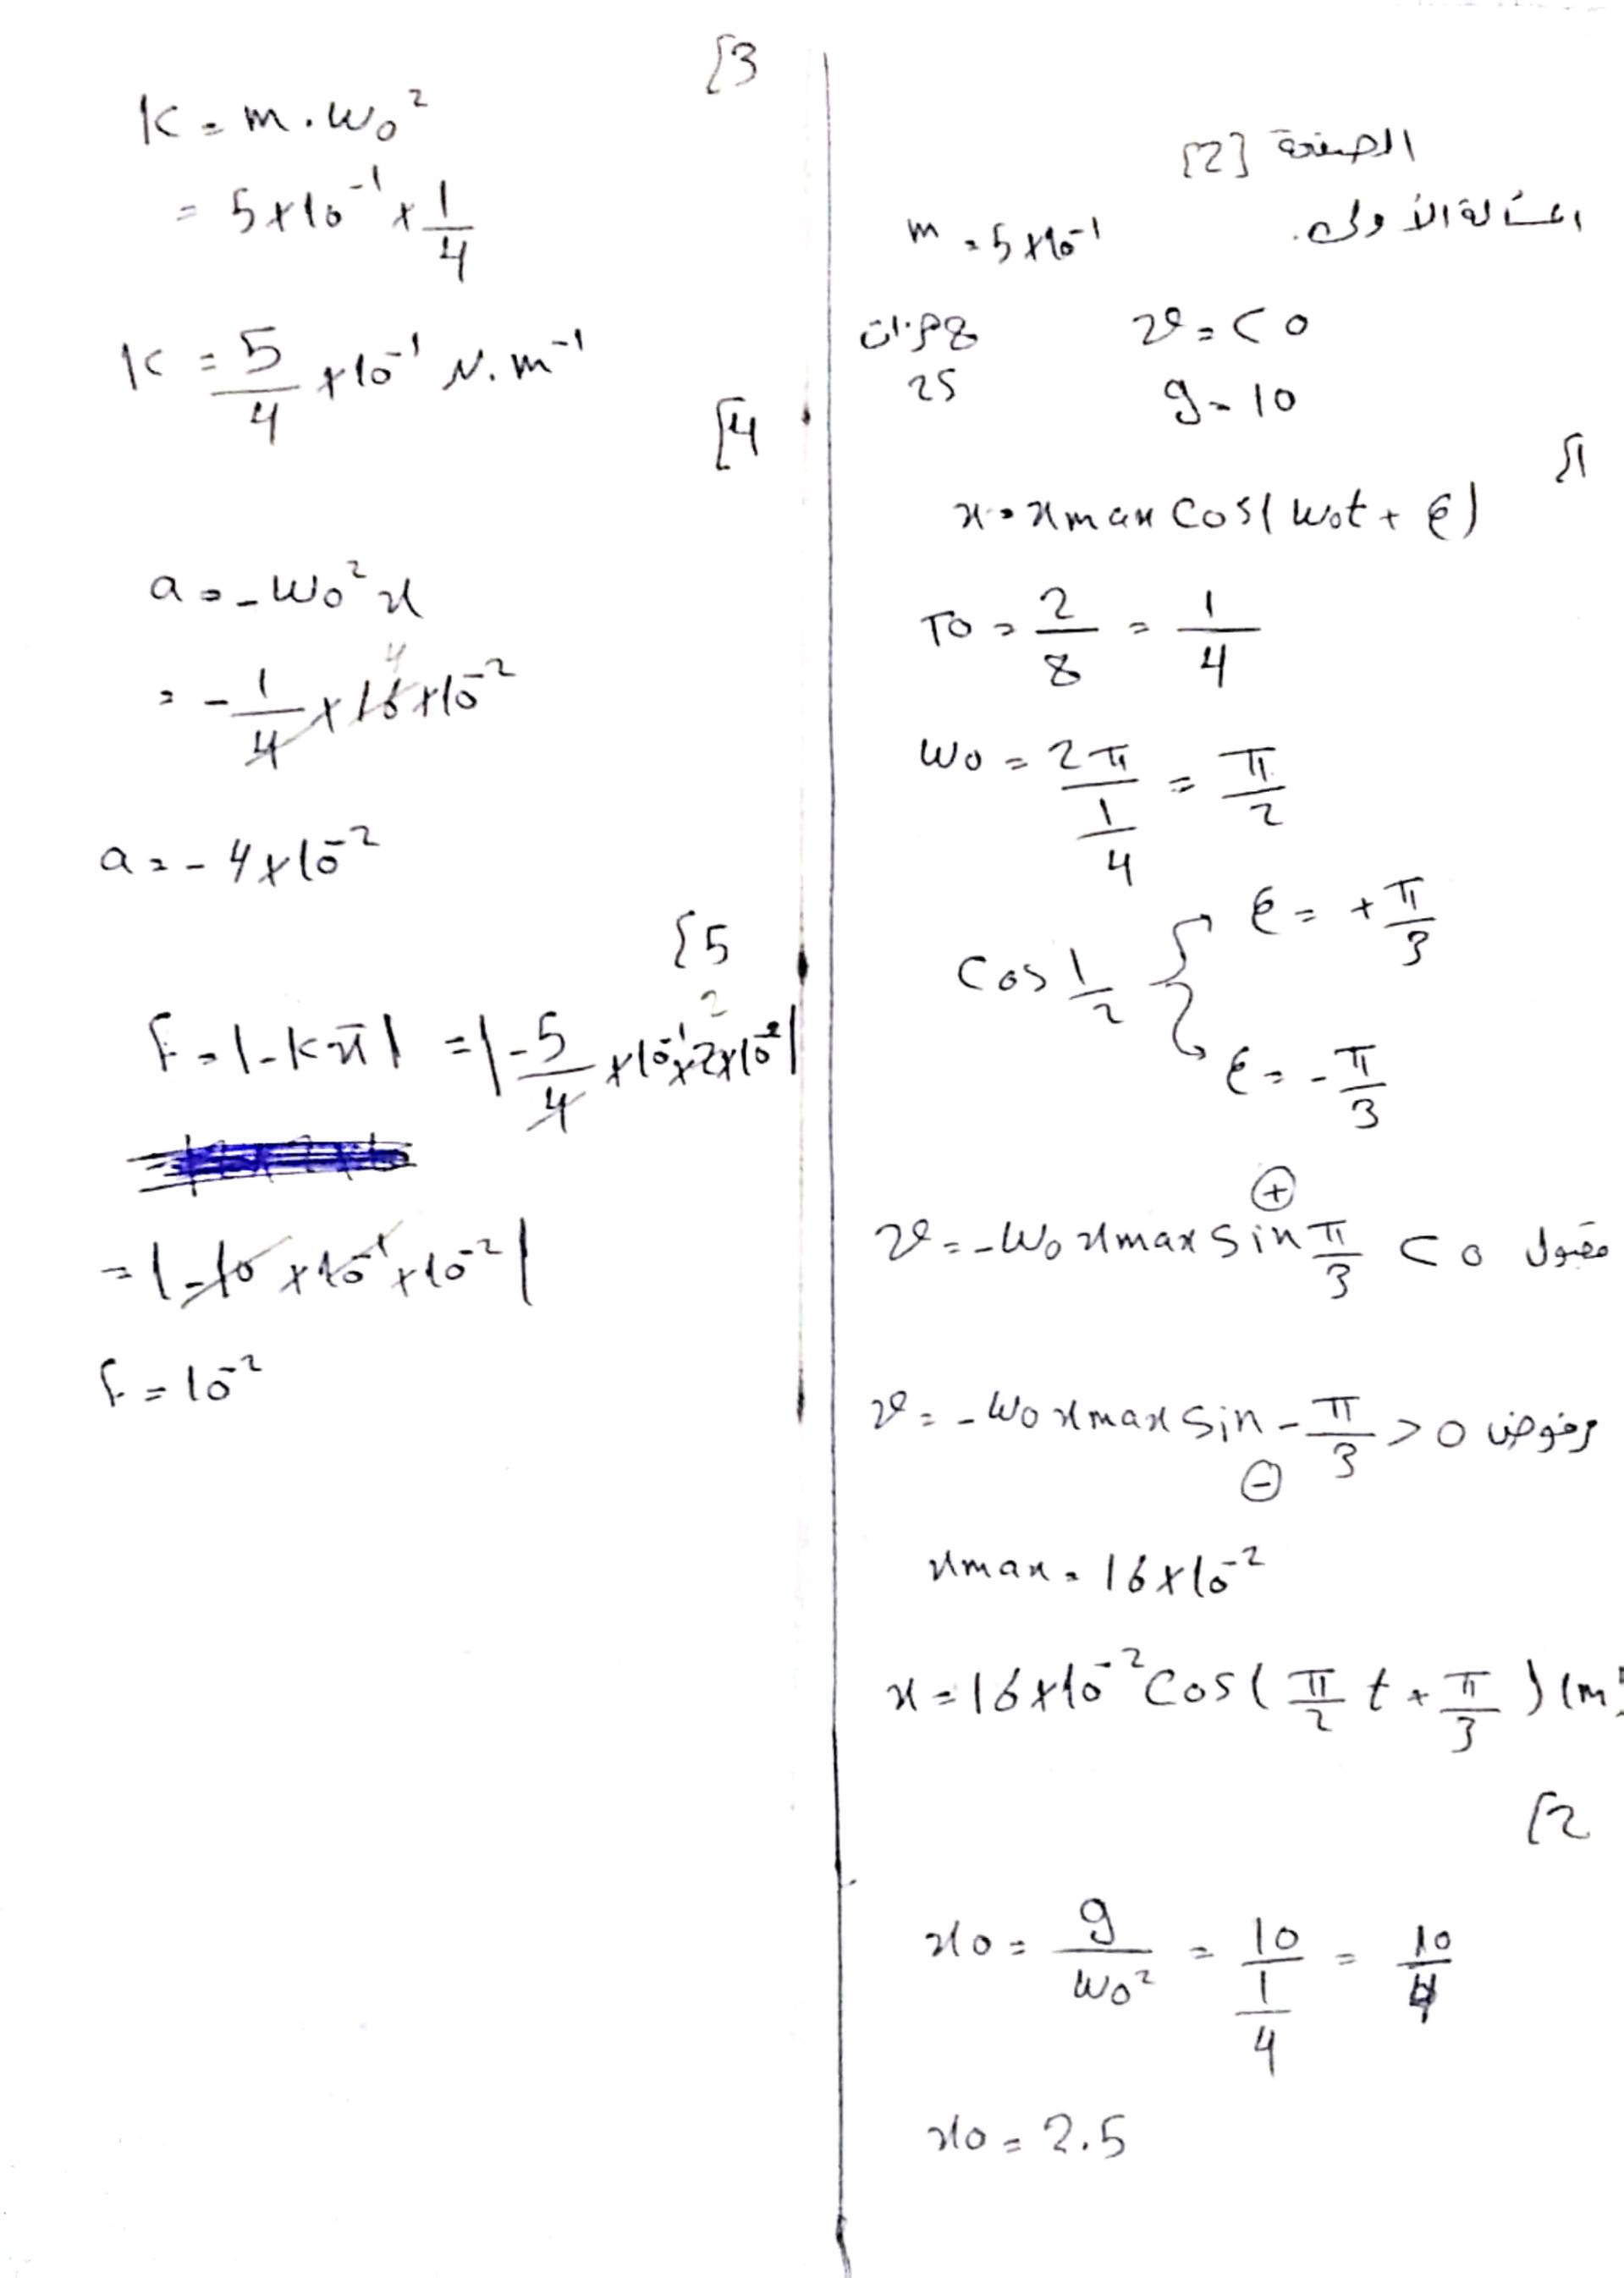 الصفحة [2]
المسألة الأولى.
m = 5×10^-1
8 هزات
25
v = < 0
g = 10
[1
x = xmax cos(ω0t + φ)
T0 = 2/8 = 1/4
ω0 = 2π/(1/4) = π/2
cos 1/2 { φ = +π/3
φ = -π/3
⊕
v = -ω0 xmax sin π/3 < 0 مقبول
v = -ω0 xmax sin -π/3 > 0 مرفوض
⊖
xmax = 16×10^-2
x = 16×10^-2 cos(π/2 t + π/3) (m)
[2
x0 = g/ω0² = 10/(1/4) = 10/4
x0 = 2.5
[3
K = m.ω0²
= 5×10^-1 × 1/4
K = 5/4 ×10^-1 N.m^-1
[4
a = -ω0² x
4
= -1/4 × 16×10^-2
a = -4×10^-2
[5
2
F = |-k x̄| = |-5/4 ×10^-1×2×10^-2|
= |-10×10^-1×10^-2|
F = 10^-2